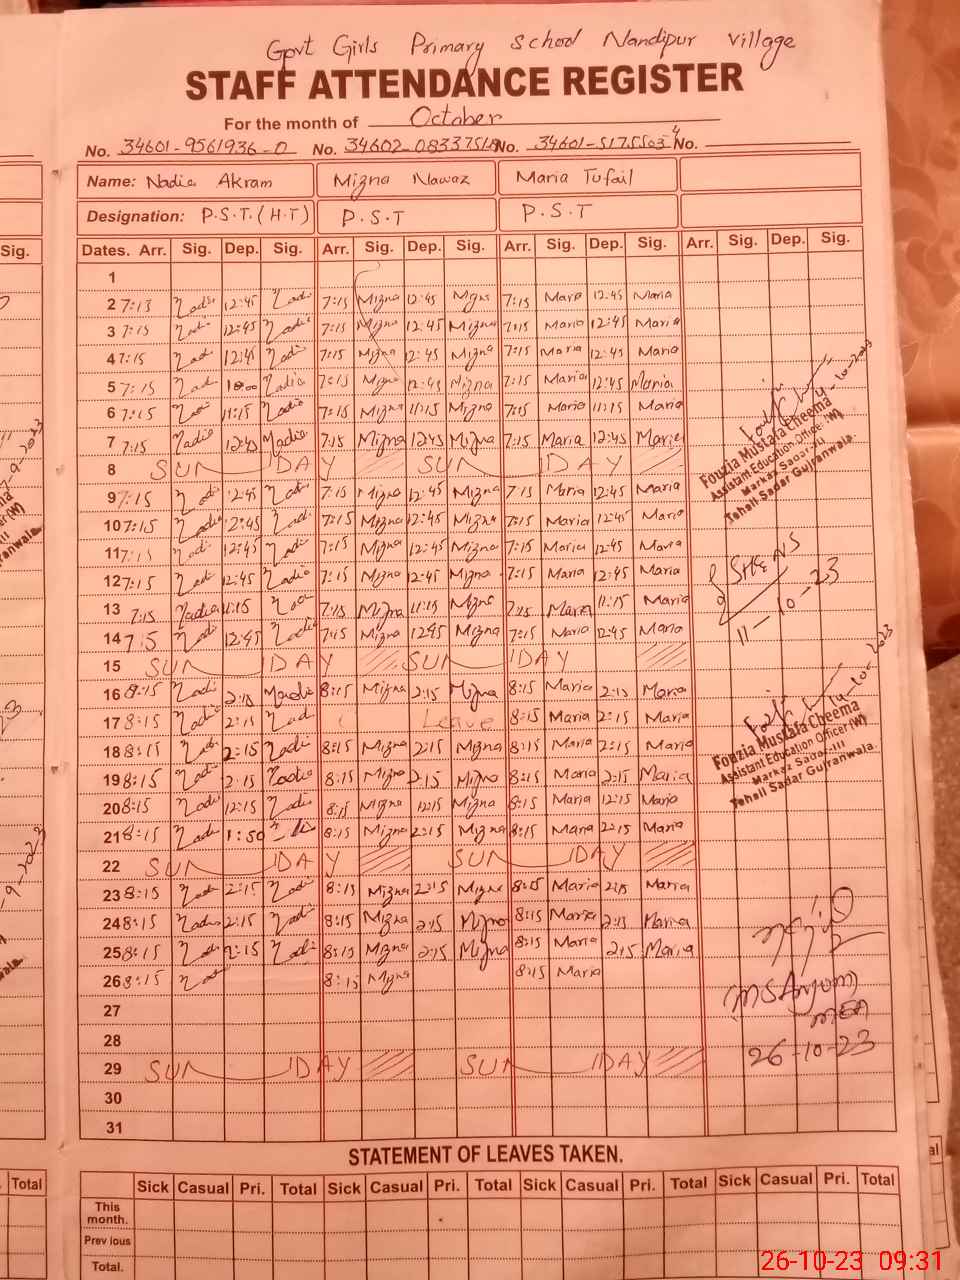 Govt Girls Primary School Nandipur Village
STAFF ATTENDANCE REGISTER
For the month of October
No. 34601-9561936-0 No. 34602-0833751 No. 34601-5175503-4 No.
Name: Nadia Akram Mizna Nawaz Maria Tufail
Designation: P.S.T.(H.T) P.S.T P.S.T
Sig. Dates. Arr. Sig. Dep. Sig. Arr. Sig. Dep. Sig. Arr. Sig. Dep. Sig. Arr. Sig. Dep. Sig.
1
2 7:13 Nadia 12:45 Nadia 7:15 Mizna 12:45 Mizna 7:15 Maria 12:45 Maria
3 7:15 Nadia 12:45 Nadia 7:15 Mizna 12:45 Mizna 7:15 Maria 12:45 Maria
4 7:15 Nadia 12:45 Nadia 7:15 Mizna 12:45 Mizna 7:15 Maria 12:45 Maria
5 7:15 Nadia Nadia 7:15 Mizna 12:45 Mizna 7:15 Maria 12:45 Maria
6 7:15 Nadia 11:15 Nadia 7:15 Mizna 11:15 Mizna 7:15 Maria 11:15 Maria
7 7:15 Nadia 12:45 Nadia 7:15 Mizna 12:45 Mizna 7:15 Maria 12:45 Maria
8 SUN DAY SUN DAY
9 7:15 Nadia 12:45 Nadia 7:15 Mizna 12:45 Mizna 7:15 Maria 12:45 Maria
10 7:15 Nadia 12:45 Nadia 7:15 Mizna 12:45 Mizna 7:15 Maria 12:45 Maria
11 7:15 Nadia 12:45 Nadia 7:15 Mizna 12:45 Mizna 7:15 Maria 12:45 Maria
12 7:15 Nadia 12:45 Nadia 7:15 Mizna 12:45 Mizna 7:15 Maria 12:45 Maria
13 7:15 Nadia 11:15 Nadia 7:15 Mizna 11:15 Mizna 7:15 Maria 11:15 Maria
14 7:15 Nadia 12:45 Nadia 7:15 Mizna 12:45 Mizna 7:15 Maria 12:45 Maria
15 SUN DAY SUN DAY
16 8:15 Nadia 2:15 Nadia 8:15 Mizna 2:15 Mizna 8:15 Maria 2:15 Maria
17 8:15 Nadia 2:15 Nadia Leave 8:15 Maria 2:15 Maria
18 8:15 Nadia 2:15 Nadia 8:15 Mizna 2:15 Mizna 8:15 Maria 2:15 Maria
19 8:15 Nadia 2:15 Nadia 8:15 Mizna 2:15 Mizna 8:15 Maria 2:15 Maria
20 8:15 Nadia 12:15 Nadia 8:15 Mizna 12:15 Mizna 8:15 Maria 12:15 Maria
21 8:15 Nadia 1:50 8:15 Mizna 2:15 Mizna 8:15 Maria 2:15 Maria
22 SUN DAY SUN DAY
23 8:15 Nadia 2:15 Nadia 8:15 Mizna 2:15 Mizna 8:15 Maria 2:15 Maria
24 8:15 Nadia 2:15 Nadia 8:15 Mizna 2:15 Mizna 8:15 Maria 2:15 Maria
25 8:15 Nadia 2:15 Nadia 8:15 Mizna 2:15 Mizna 8:15 Maria 2:15 Maria
26 8:15 Nadia 8:15 Mizna 8:15 Maria
27
28
29 SUN DAY SUN DAY
30
31
4-10-2023
Fouzia Mustafa Cheema
Assistant Education Officer (W)
Markaz Sadar-III
Tehsil Sadar Gujranwala.
11-10-23
Fouzia Mustafa Cheema
Assistant Education Officer (W)
Markaz Sadar-III
Tehsil Sadar Gujranwala.
MEA
26-10-23
STATEMENT OF LEAVES TAKEN.
Total Sick Casual Pri. Total Sick Casual Pri. Total Sick Casual Pri. Total Sick Casual Pri. Total
This month.
Prev ious
Total.
26-10-23 09:31